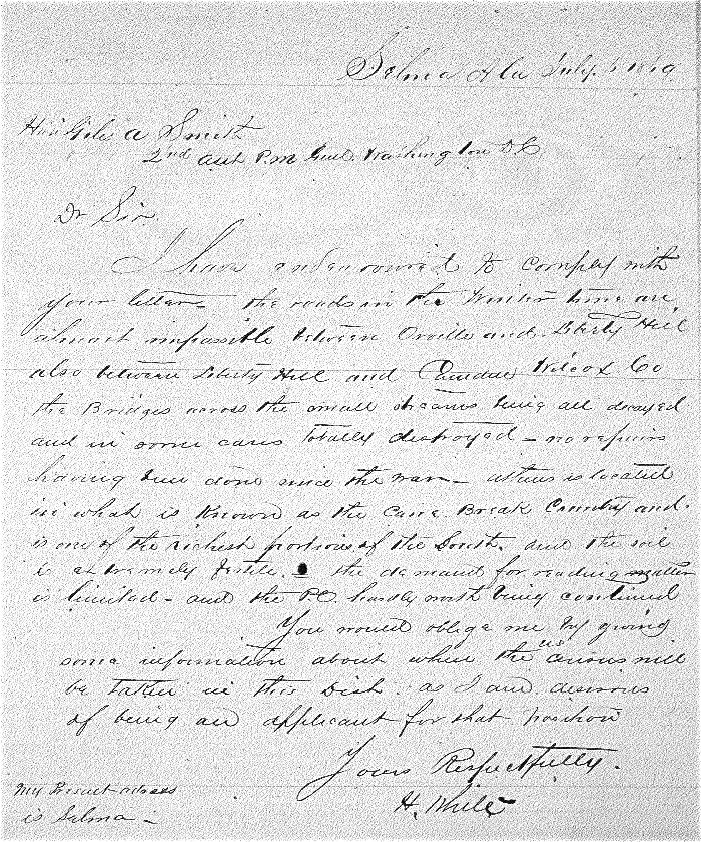 Selma Ala July 6 1869
Hon Giles A Smith
2nd asst P.M Genl. Washington DC
Dr Sir.
I have endeavoured to comply with
your letter - the roads in the Winter time are
almost impossible between Orville and Liberty Hill
also between Liberty Hill and Camden Wilcox Co
the Bridges across the small streams being all decayed
and in some cases totally destroyed - no repairs
having been done since the war - athens is located
in what is Known as the Cane Break Country and
is one of the richest portions of the South. and the soil
is extremely fertile. the demand for reading matter
is limited - and the P.O. hardly worth being continued
You would oblige me by giving
some information about when the us census will
be taken in this Dist. as I am desirous
of being an applicant for that position
Yours Respectfully.
H. White
My Present adress
is Selma -